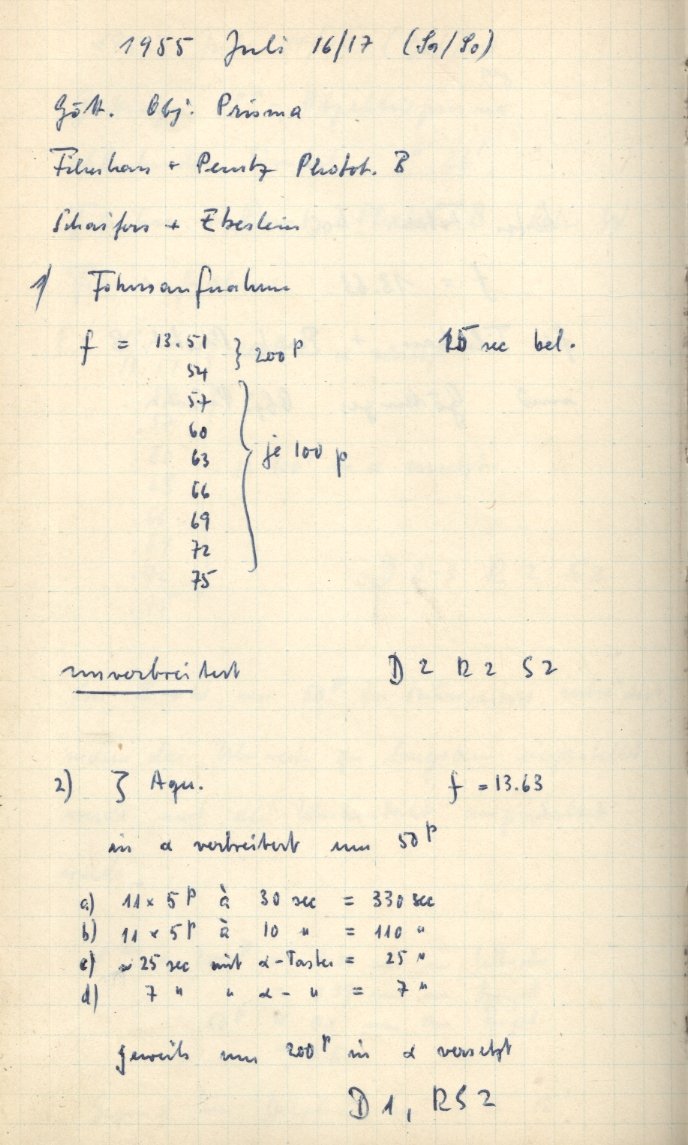 1955 Juli 16/17 (Sa/So)
Gött. Obj. Prisma
Filmhaus + Perutz Photot. B
Schaifers + Ebeslein
1) Fokusaufnahme
f = 13.51 } 200 p 15 sec bel.
54
57
60
63 } je 100 p
66
69
72
75
unverbreitert D2 R2 S2
2) ζ Aqu. f = 13.63
in α verbreitert um 50 p
a) 11 × 5 p à 30 sec = 330 sec
b) 11 × 5 p à 10 " = 110 "
c) ~ 25 sec mit α-Taste = 25 "
d) 7 " " α- " = 7 "
jeweils um 200 p in α versetzt
D1, RS2